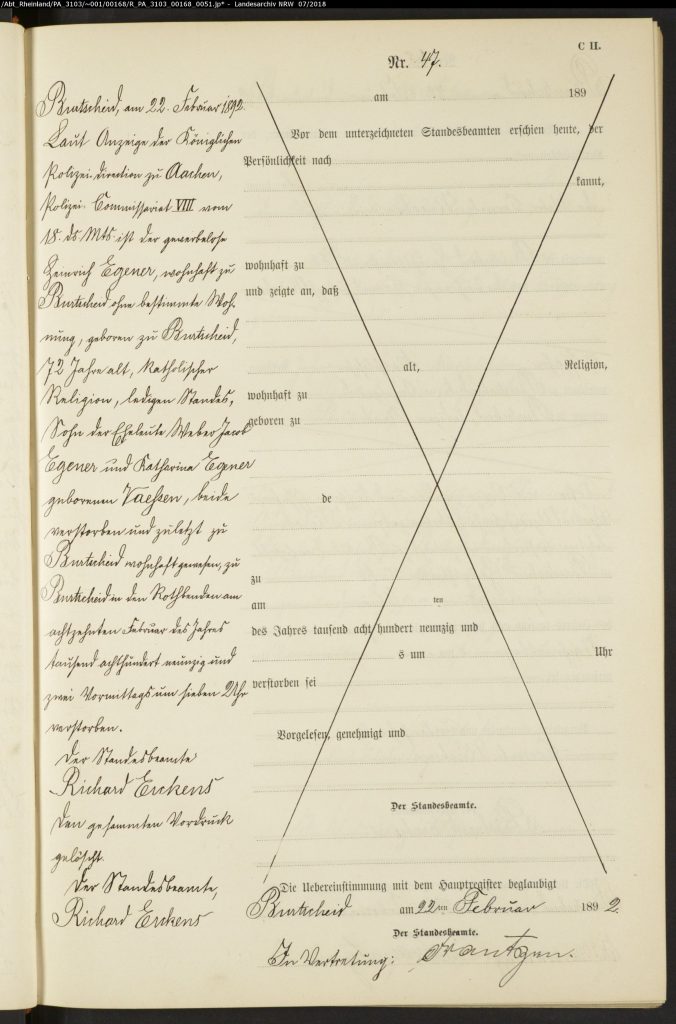 /Abt_Rheinland/PA_3103/~001/00168/R_PA_3103_00168_0051.jp* - Landesarchiv NRW 07/2018
C II.
Nr. 47.
Burtscheid, am 22. Februar 1892.
Laut Anzeige der Königlichen
Polizei-Direction zu Aachen,
Polizei-Commissariat VIII vom
18. ds Mts. ist der gewerbelose
Heinrich Egener, wohnhaft zu
Burtscheid ohne bestimmte Woh-
nung, geboren zu Burtscheid,
72 Jahre alt, katholischer
Religion, ledigen Standes,
Sohn der Eheleute Weber Jacob
Egener und Katharina Egener
geborenen Vaessen, beide
verstorben und zuletzt zu
Burtscheid wohnhaft gewesen, zu
Burtscheid in den Rothbenden am
achtzehnten Februar des Jahres
tausend achthundert neunzig und
zwei Vormittags um sieben Uhr
verstorben.
Der Standesbeamte
Richard Erckens
Den gesammten Vordruck
gelöscht.
Der Standesbeamte,
Richard Erckens
am 189
Vor dem unterzeichneten Standesbeamten erschien heute, der
Persönlichkeit nach
kannt,
wohnhaft zu
und zeigte an, daß
alt, Religion,
wohnhaft zu
geboren zu
de
zu
am ten
des Jahres tausend acht hundert neunzig und
s um Uhr
verstorben sei
Vorgelesen, genehmigt und
Der Standesbeamte.
Die Uebereinstimmung mit dem Hauptregister beglaubigt
Burtscheid am 22ten Februar 1892.
Der Standesbeamte.
In Vertretung: Frantzen.